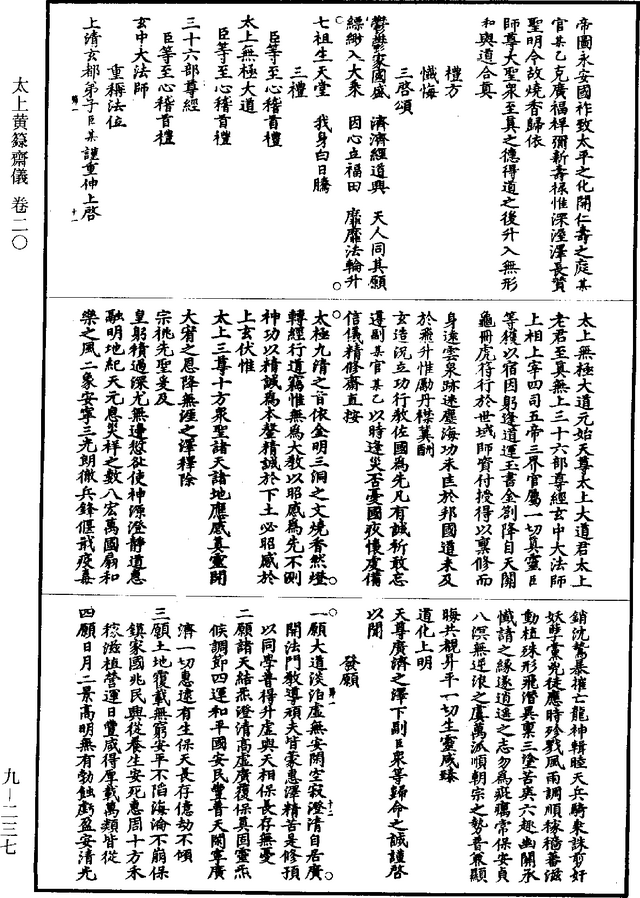 太上黃籙齋儀 卷二〇
九－二三七
帝圖永安國祚致太平之化開仁壽之庭某
官某乙克廣福祥彌新壽祿惟深溼澤長賛
聖明今故燒香歸依
師尊大聖衆至真之德得道之後升入無形
和與道合真
禮方
懺悔
三啓頌
鬱鬱家國盛 濟濟經道興 天人同其願
縹緲入大乘 因心立福田 靡靡法輪升
七祖生天堂 我身白日騰
三禮
臣等至心稽首禮
太上無極大道
臣等至心稽首禮
三十六部尊經
臣等至心稽首禮
玄中大法師
重稱法位
上清玄都弟子臣某謹重伸上啓
太上無極大道元始天尊太上大道君太上
老君至真無上三十六部尊經玄中大法師
上相上宰四司五帝三界官屬一切真靈臣
等獲以宿因躬逢道運玉書金劄降自天閣
龜冊虎符行於世域師資付授得以稟修而
身遠雲泉跡迷塵海功未臣於邦國道未及
於飛升惟勵丹襟冀酬
玄造況立功行教佐國為先凡有誠祈敢忘
遵副某官某乙以時逢災否憂國夜懷虔備
信儀精修齋直按
太極九清之旨依金明三洞之文燒香然燈
轉經行道竊惟無為大教以昭感為先不測
神功以精誠為本罄精誠於下土必昭感於
上玄伏惟
太上三尊十方衆聖諸天諸地應感真靈開
大宥之恩降無涯之澤釋除
宗祧先聖爰及
皇躬積過深尤無邊愆咎使神源澄靜道惠
融明地紀天元息災祥之數八宏萬國扇和
樂之風二象安寧三光朗徹兵鋒偃戢疫毒
銷沈驚暴摧亡龍神輯睦天兵騎東誅剪奸
妖孽黨兇徒應時殄戮風雨調順稼穡蕃滋
動植殊形飛潛異稟三塗苦爽六趣幽關承
懺請之緣遂逍遙之志勿為疵癘常保安貞
八溟無逆浪之虞萬派順朝宗之勢普兼顯
晦共覩昇平一切生靈咸臻
道化上明
天尊廣濟之澤下副臣衆等歸命之誠謹啓
以聞
發願
一願大道淡泊虛無安閑空寂澄清自居廣
開法門教導頑夫皆蒙惠澤精苦是修預
以同學普得升虛與天相保長存無憂
二願諸天結炁澄清高虛廣覆保真固靈炁
候調節四運和平國安民豐普天閑寧廣
濟一切惠遠有生保天長存億劫不傾
三願土地覆載無窮安平不陷海淪不崩保
鎮家國兆民興從養生安死惠周十方禾
稼滋植營運日豐咸得厚載萬類皆從
四願日月二景高明無有勃蝕虧盈安清光